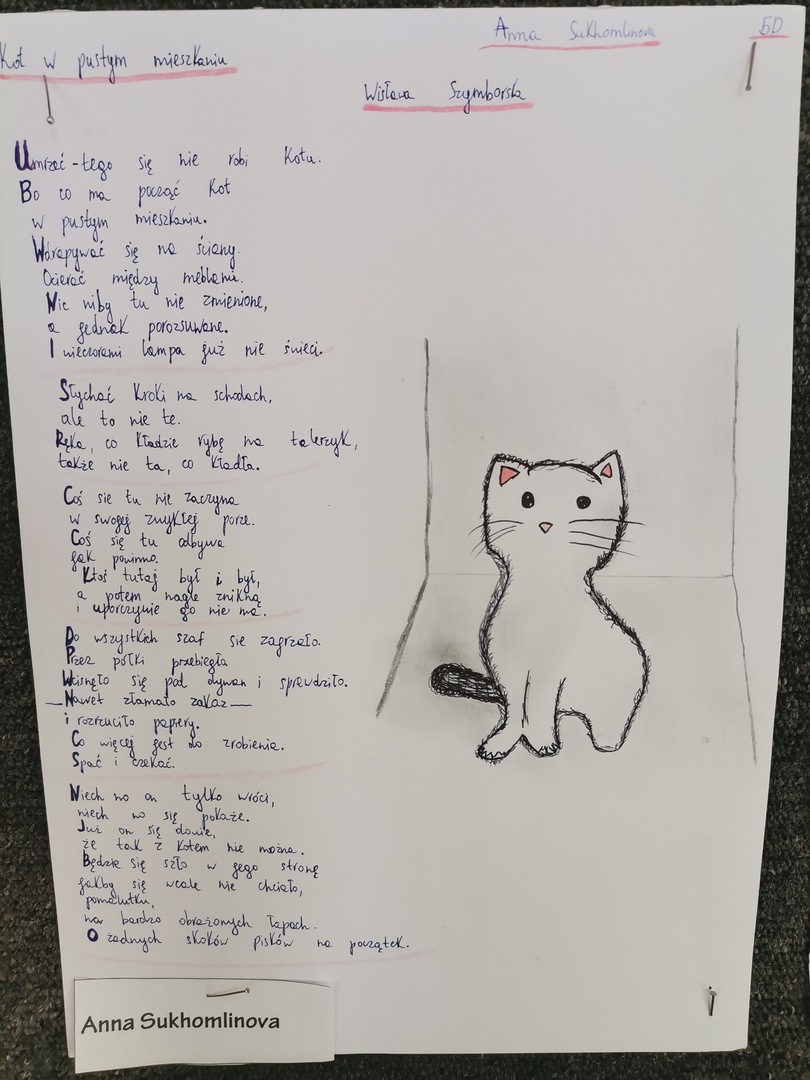 Anna Sukhomlinova 5D
Kot w pustym mieszkaniu
Wisława Szymborska
Umrzeć - tego się nie robi kotu.
Bo co ma począć kot
w pustym mieszkaniu.
Wdrapywać się na ściany.
Ocierać między meblami.
Nic niby tu nie zmienione,
a jednak porozsuwane.
I wieczorami lampa już nie świeci.
Słychać kroki na schodach,
ale to nie te.
Ręka, co kładzie rybę na talerzyk,
także nie ta, co kładła.
Coś sie tu nie zaczyna
w swojej zwykłej porze.
Coś się tu odbywa
jak powinno.
Ktoś tutaj był i był,
a potem nagle zniknął
i uporczywie go nie ma.
Do wszystkich szaf sie zagrzało.
Przez półki przebiegła
Wcisnęło się pod dywan i sprawdziło.
Nawet złamało zakaz
i rozrzuciło papiery.
Co więcej jest do zrobienia.
Spać i czekać.
Niech no on tylko wróci,
niech no się pokaże.
Już on się dowie,
że tak z kotem nie można.
Będzie się szło w jego stronę
jakby się wcale nie chciało,
pomalutku,
na bardzo obrażonych łapach.
O żadnych skoków pisków na początek.
Anna Sukhomlinova